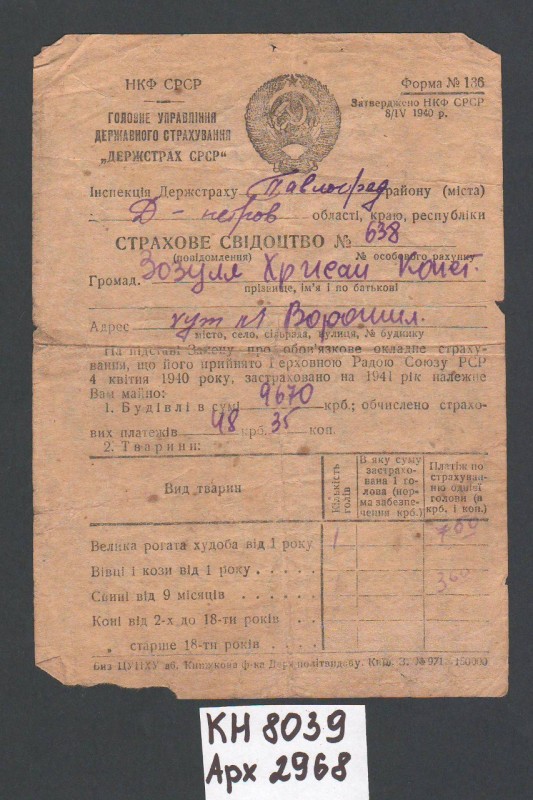 НКФ СРСР
ГОЛОВНЕ УПРАВЛІННЯ
ДЕРЖАВНОГО СТРАХУВАННЯ
„ДЕРЖСТРАХ СРСР“
Форма № 136
Затверджено НКФ СРСР
8/IV 1940 р.
Інспекція Держстраху Павлоград району (міста)
Д-петров області, краю, республіки
СТРАХОВЕ СВІДОЦТВО № 638
(повідомлення) № особового рахунку
Громад. Зозуля Хрисан Конст.
прізвище, ім'я і по батькові
Адрес хут Ворошил.
місто, село, сільрада, вулиця, № будинку
На підставі Закону про обов'язкове окладне страху-
вання, що його прийнято Верховною Радою Союзу РСР
4 квітня 1940 року, застраховано на 1941 рік належне
Вам майно:
1. Будівлі в сумі 9670 крб.; обчислено страхо-
вих платежів 48 крб. 35 коп.
2. Тварини:
Вид тварин
Кількість голів
В яку суму застрахо-
вана 1 го-
лова (нор-
ма забезпе-
чення крб.)
Платіж по
страхуван-
ню одної
голови (в
крб. і коп.)
Велика рогата худоба від 1 року 1 700
Вівці і кози від 1 року
Свині від 9 місяців
Коні від 2-х до 18-ти років
„ старше 18-ти років
КН 8039
Арх 2968